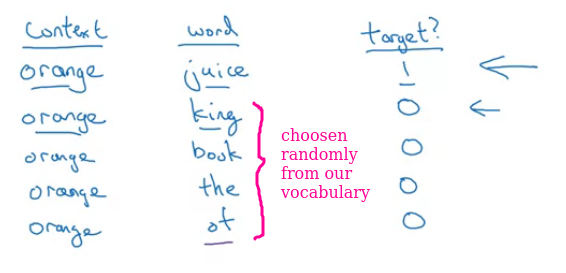 context word target?
orange juice 1
orange king 0
orange book 0
orange the 0
orange of 0
choosen
randomly
from our
vocabulary